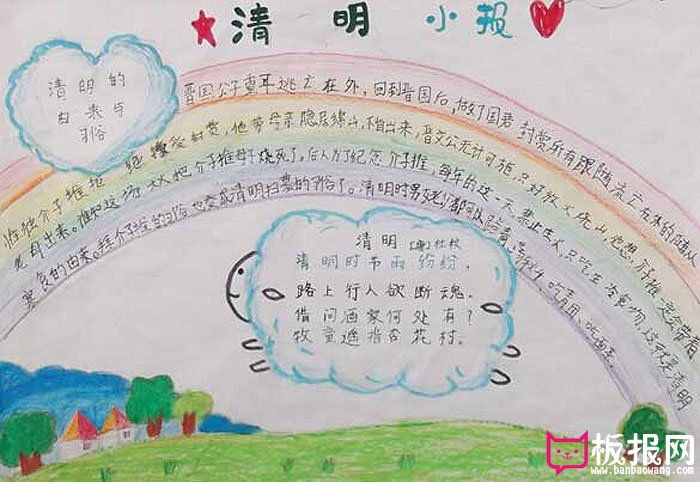 清明小报
清明的
由来与
习俗
晋国公子重耳逃亡在外，回到晋国后，做了国君，封赏所有跟随流亡在外的随从
惟独介子推拒绝接受封赏，他带母亲隐居绵山，不肯出来，晋文公无计可施，只好放火烧山，他想，介子推
老母出来。谁知这场大火把介子推母子烧死了，后人为了纪念介子推，每年的这一天，禁止生火，只吃生冷食物，这就是清明
寒食的由来。拜介子推的习俗也变成清明扫墓的习俗了。清明时
清明 【唐】杜牧
清明时节雨纷纷，
路上行人欲断魂。
借问酒家何处有？
牧童遥指杏花村。
板报网
www.banbaowang.com